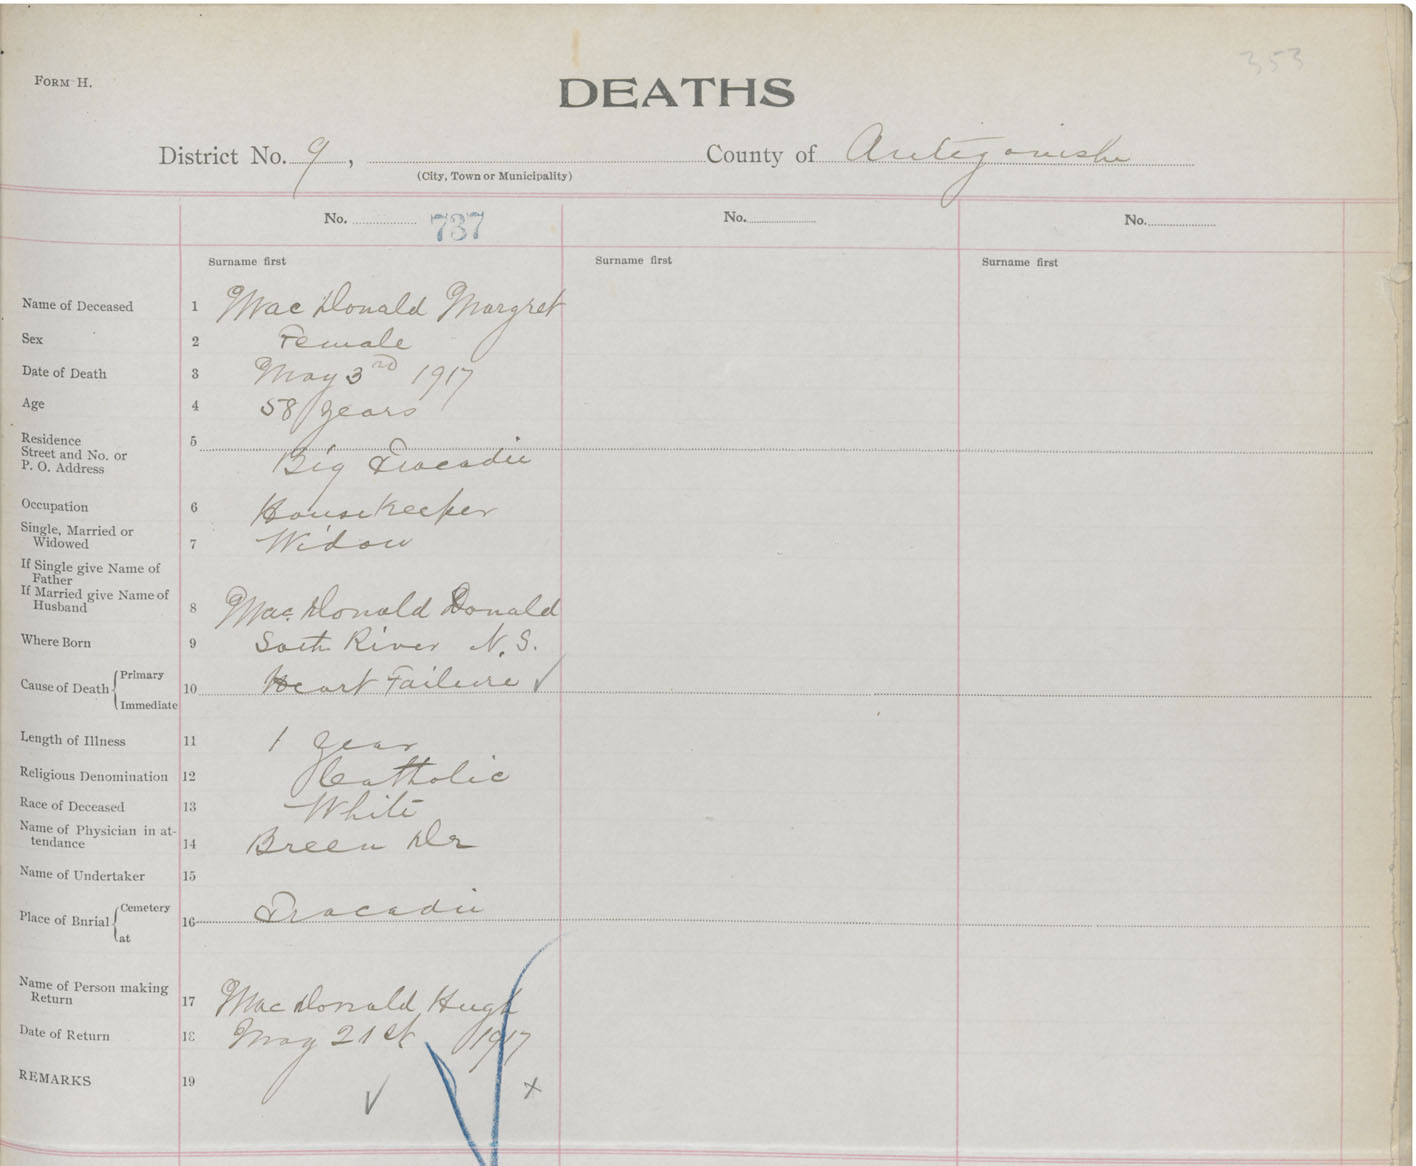 353
FORM H.
DEATHS
District No. 9, County of Antigonish
(City, Town or Municipality)
No. 737 No. No.
Surname first Surname first Surname first
Name of Deceased 1 MacDonald Margret
Sex 2 Female
Date of Death 3 May 3rd 1917
Age 4 58 years
Residence 5
Street and No. or
P. O. Address Big Tracadie
Occupation 6 HouseKeeper
Single, Married or
Widowed 7 Widow
If Single give Name of
Father
If Married give Name of
Husband 8 Mac Donald Donald
Where Born 9 South River N.S.
Cause of Death { Primary
10 Heart Failure ✓
Immediate
Length of Illness 11 1 year
Religious Denomination 12 Catholic
Race of Deceased 13 White
Name of Physician in at-
tendance 14 Breen Dr
Name of Undertaker 15
Place of Burial { Cemetery
16 Tracadie
at
Name of Person making
Return 17 MacDonald Hugh
Date of Return 18 May 21st 1917
REMARKS 19 ✓ x